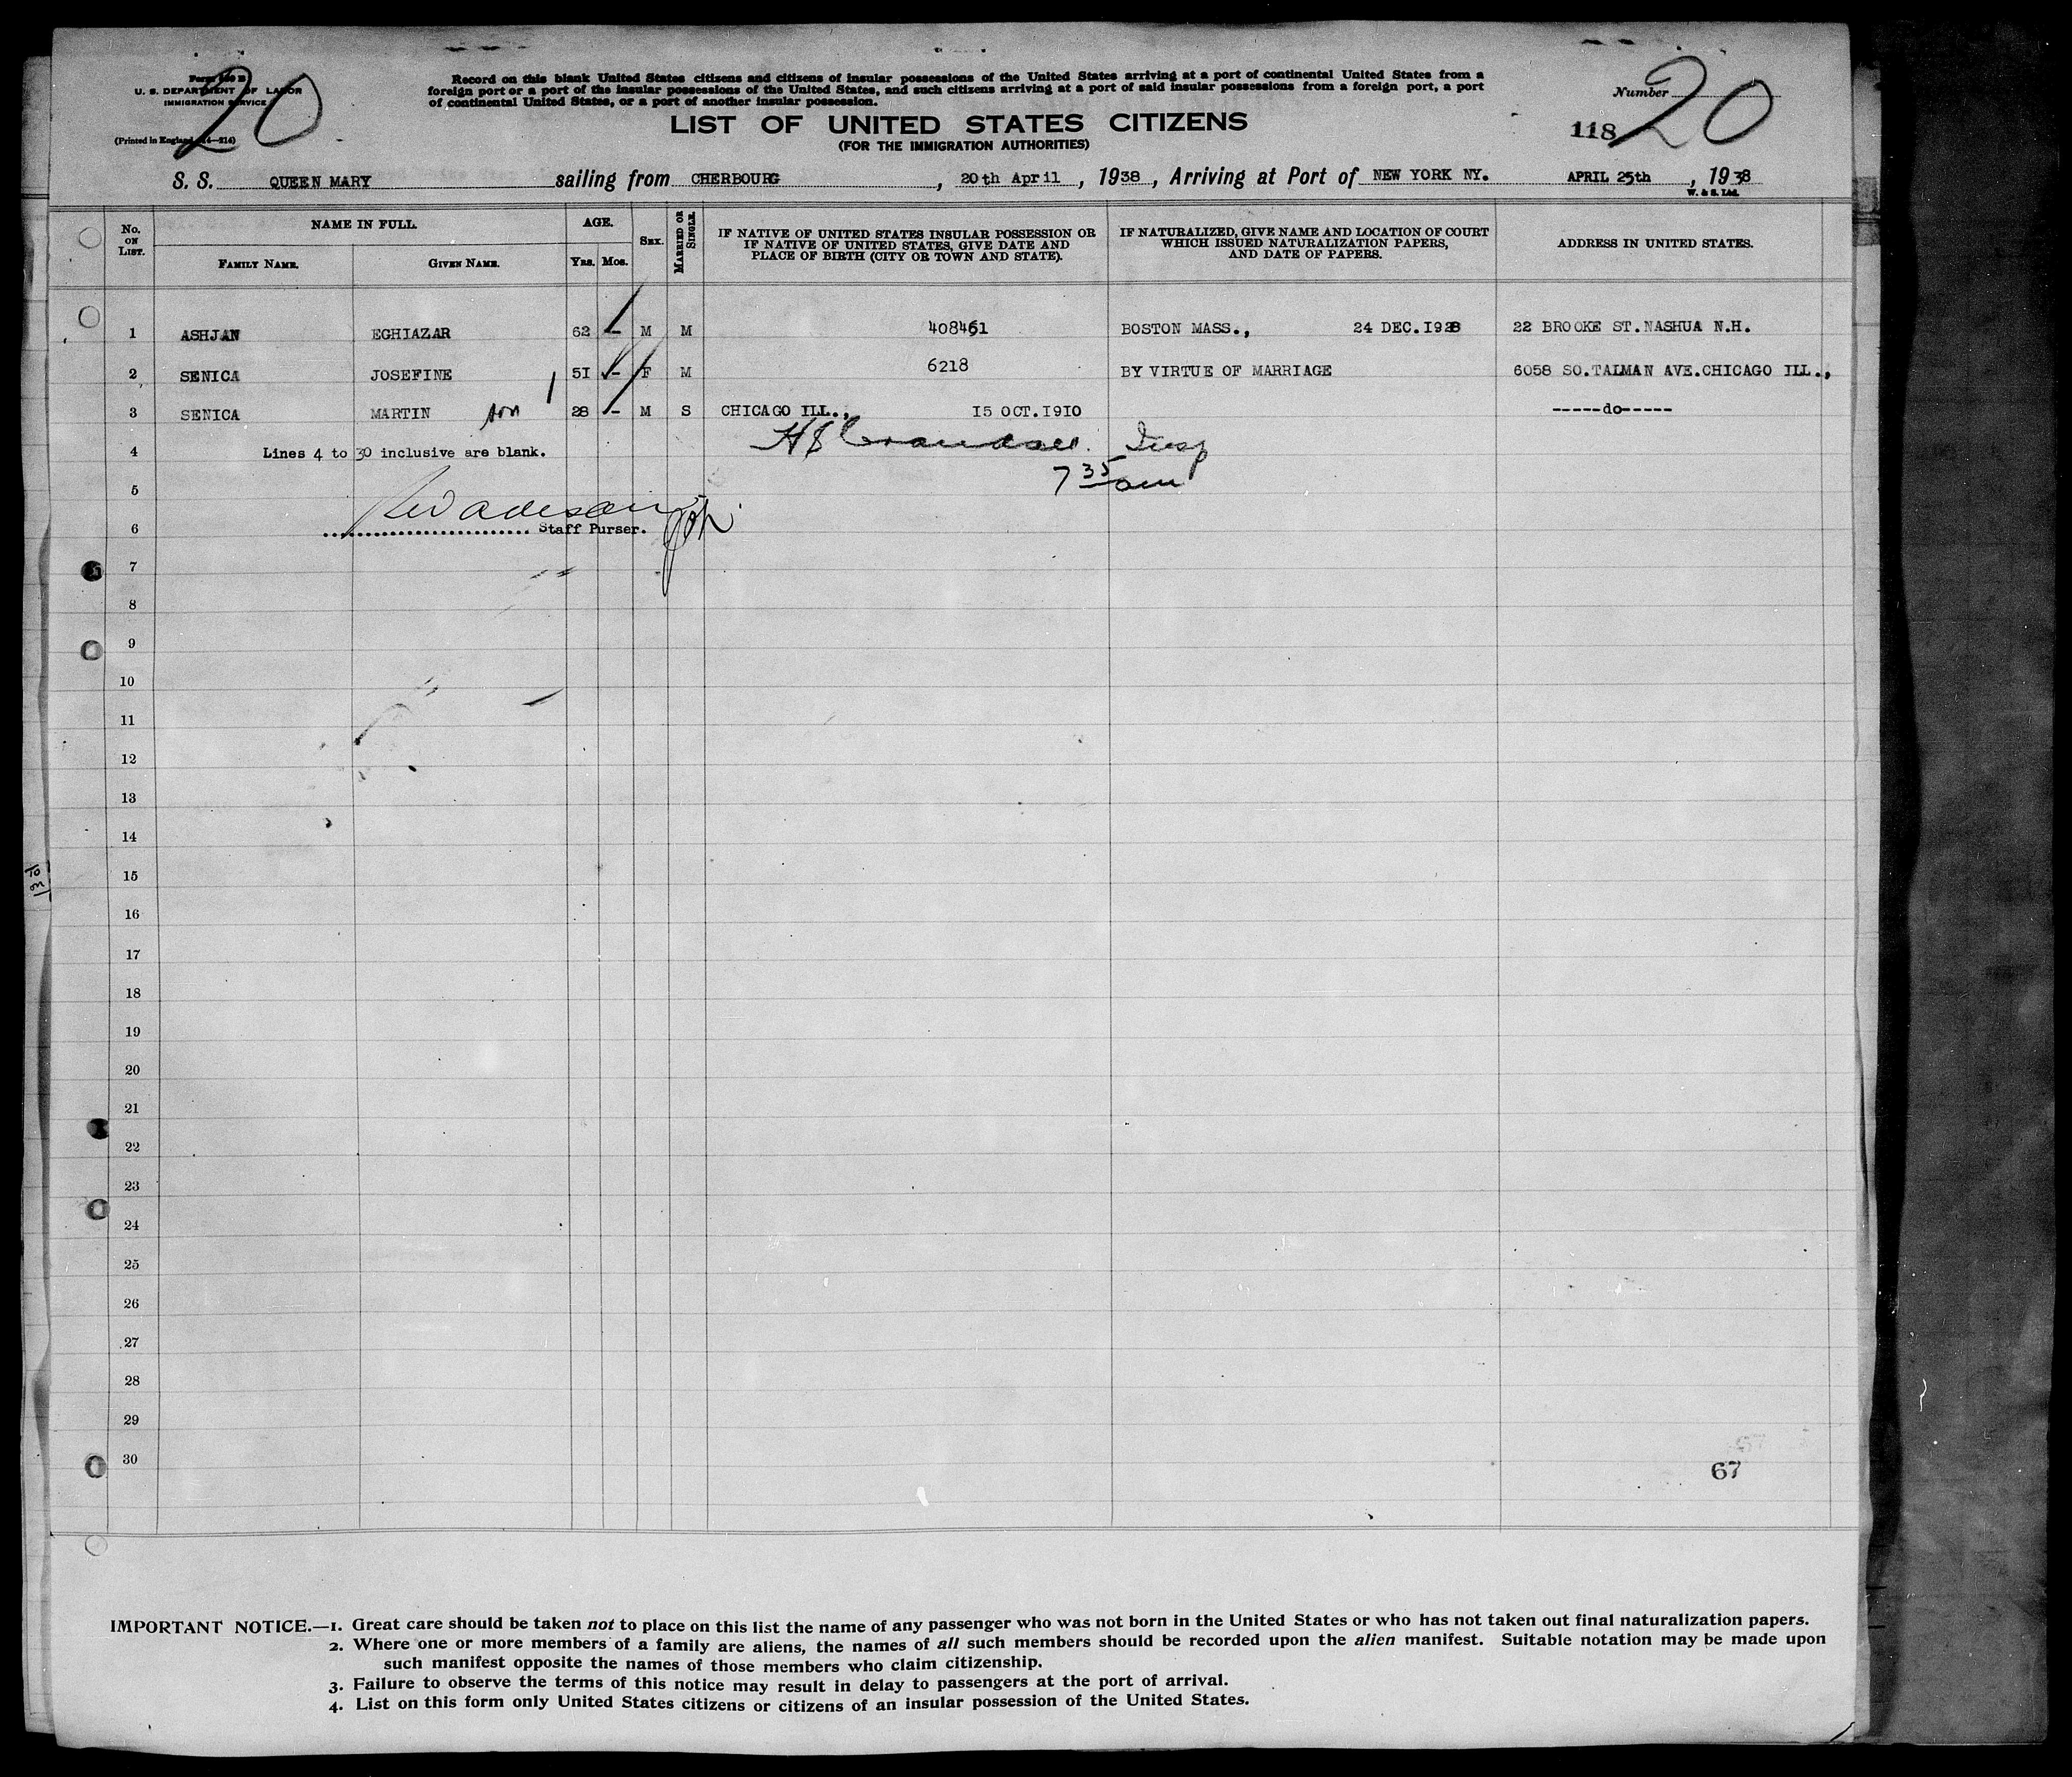 Form 500 B
U. S. DEPARTMENT OF LABOR
IMMIGRATION SERVICE
(Printed in England
20
Record on this blank United States citizens and citizens of insular possessions of the United States arriving at a port of continental United States from a
foreign port or a port of the insular possessions of the United States, and such citizens arriving at a port of said insular possessions from a foreign port, a port
of continental United States, or a port of another insular possession.
Number 20
118
LIST OF UNITED STATES CITIZENS
(FOR THE IMMIGRATION AUTHORITIES)
S. S. QUEEN MARY sailing from CHERBOURG, 20th April, 1938, Arriving at Port of NEW YORK NY. APRIL 25th, 1938
W. & S. Ltd.
No. ON LIST. NAME IN FULL. AGE. SEX. MARRIED OR SINGLE. IF NATIVE OF UNITED STATES INSULAR POSSESSION OR IF NATIVE OF UNITED STATES, GIVE DATE AND PLACE OF BIRTH (CITY OR TOWN AND STATE). IF NATURALIZED, GIVE NAME AND LOCATION OF COURT WHICH ISSUED NATURALIZATION PAPERS, AND DATE OF PAPERS. ADDRESS IN UNITED STATES.
FAMILY NAME. GIVEN NAME. Yrs. Mos.
1 ASHJAN EGHIAZAR 62 - M M 408461 BOSTON MASS., 24 DEC.1928 22 BROOKE ST.NASHUA N.H.
2 SENICA JOSEFINE 51 - F M 6218 BY VIRTUE OF MARRIAGE 6058 SO.TALMAN AVE.CHICAGO ILL.,
3 SENICA MARTIN son 28 - M S CHICAGO ILL., 15 OCT.1910 -----do-----
4 Lines 4 to 30 inclusive are blank. Insp
7 35 am
5
6 Staff Purser.
7
8
9
10
11
12
13
14
15
16
17
18
19
20
21
22
23
24
25
26
27
28
29
30
67
IMPORTANT NOTICE.—1. Great care should be taken not to place on this list the name of any passenger who was not born in the United States or who has not taken out final naturalization papers.
2. Where one or more members of a family are aliens, the names of all such members should be recorded upon the alien manifest. Suitable notation may be made upon
such manifest opposite the names of those members who claim citizenship.
3. Failure to observe the terms of this notice may result in delay to passengers at the port of arrival.
4. List on this form only United States citizens or citizens of an insular possession of the United States.